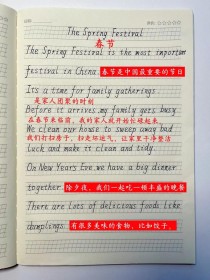 The Spring Festival
春节
The Spring Festival is the most important
festival in China. 春节是中国最重要的节日
It's a time for family gatherings.
是家人团聚的时刻
Before it arrives, my family gets busy.
在春节来临前，我的家人就开始忙碌起来
We clean our house to sweep away bad
我们打扫房子，扫走坏运气，让家里干净整洁
Luck and make it clean and tidy.
On New Years Eve, we have a big dinner
together. 除夕夜，我们一起吃一顿丰盛的晚餐
There are lots of delicious foods like
dumplings. 有很多美味的食物，比如饺子。